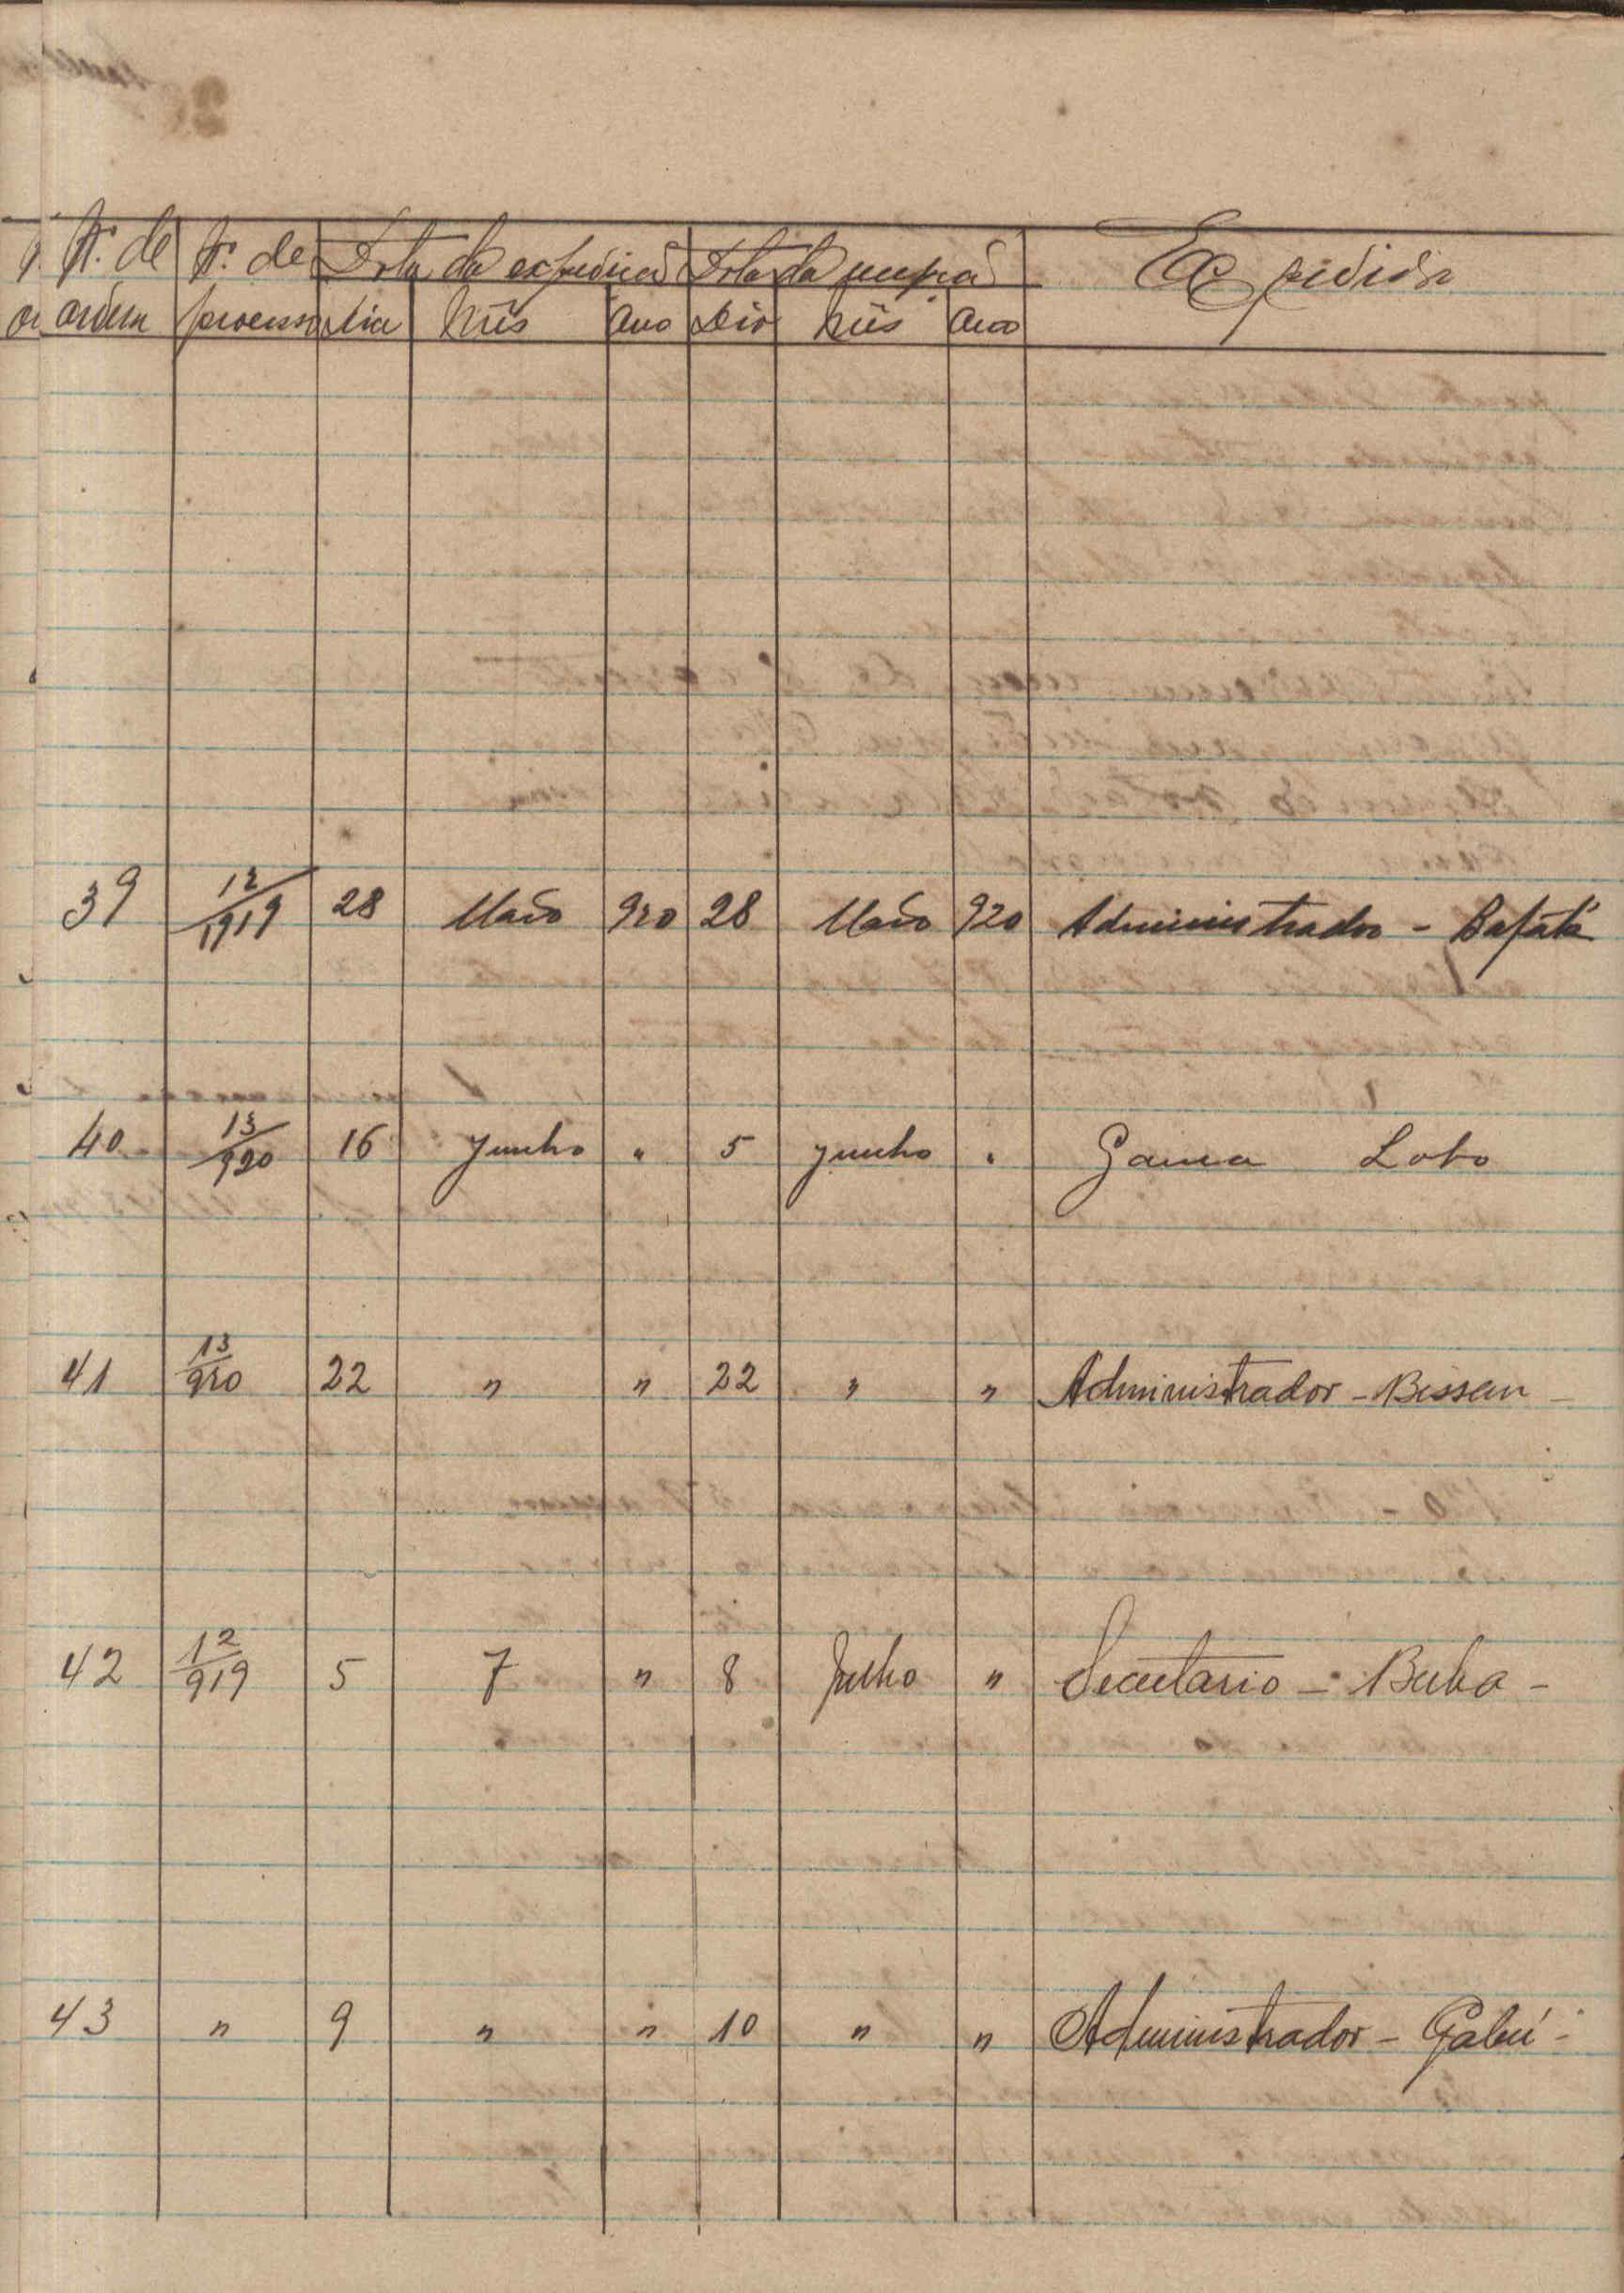 Nº. de Nº. de Data da expedição Data da recepção Expedidor
ordem processo Dia Mês Ano Dia Mês Ano
39 12/1919 28 Maio 920 28 Maio 920 Administrador - Bafatá
40 13/920 16 Junho " 5 Junho " Gama Lobo
41 13/920 22 " " 22 " " Administrador - Bissau -
42 12/919 5 7 " 8 Julho " Secretario - Buba -
43 " 9 " " 10 " " Administrador - Gabú -